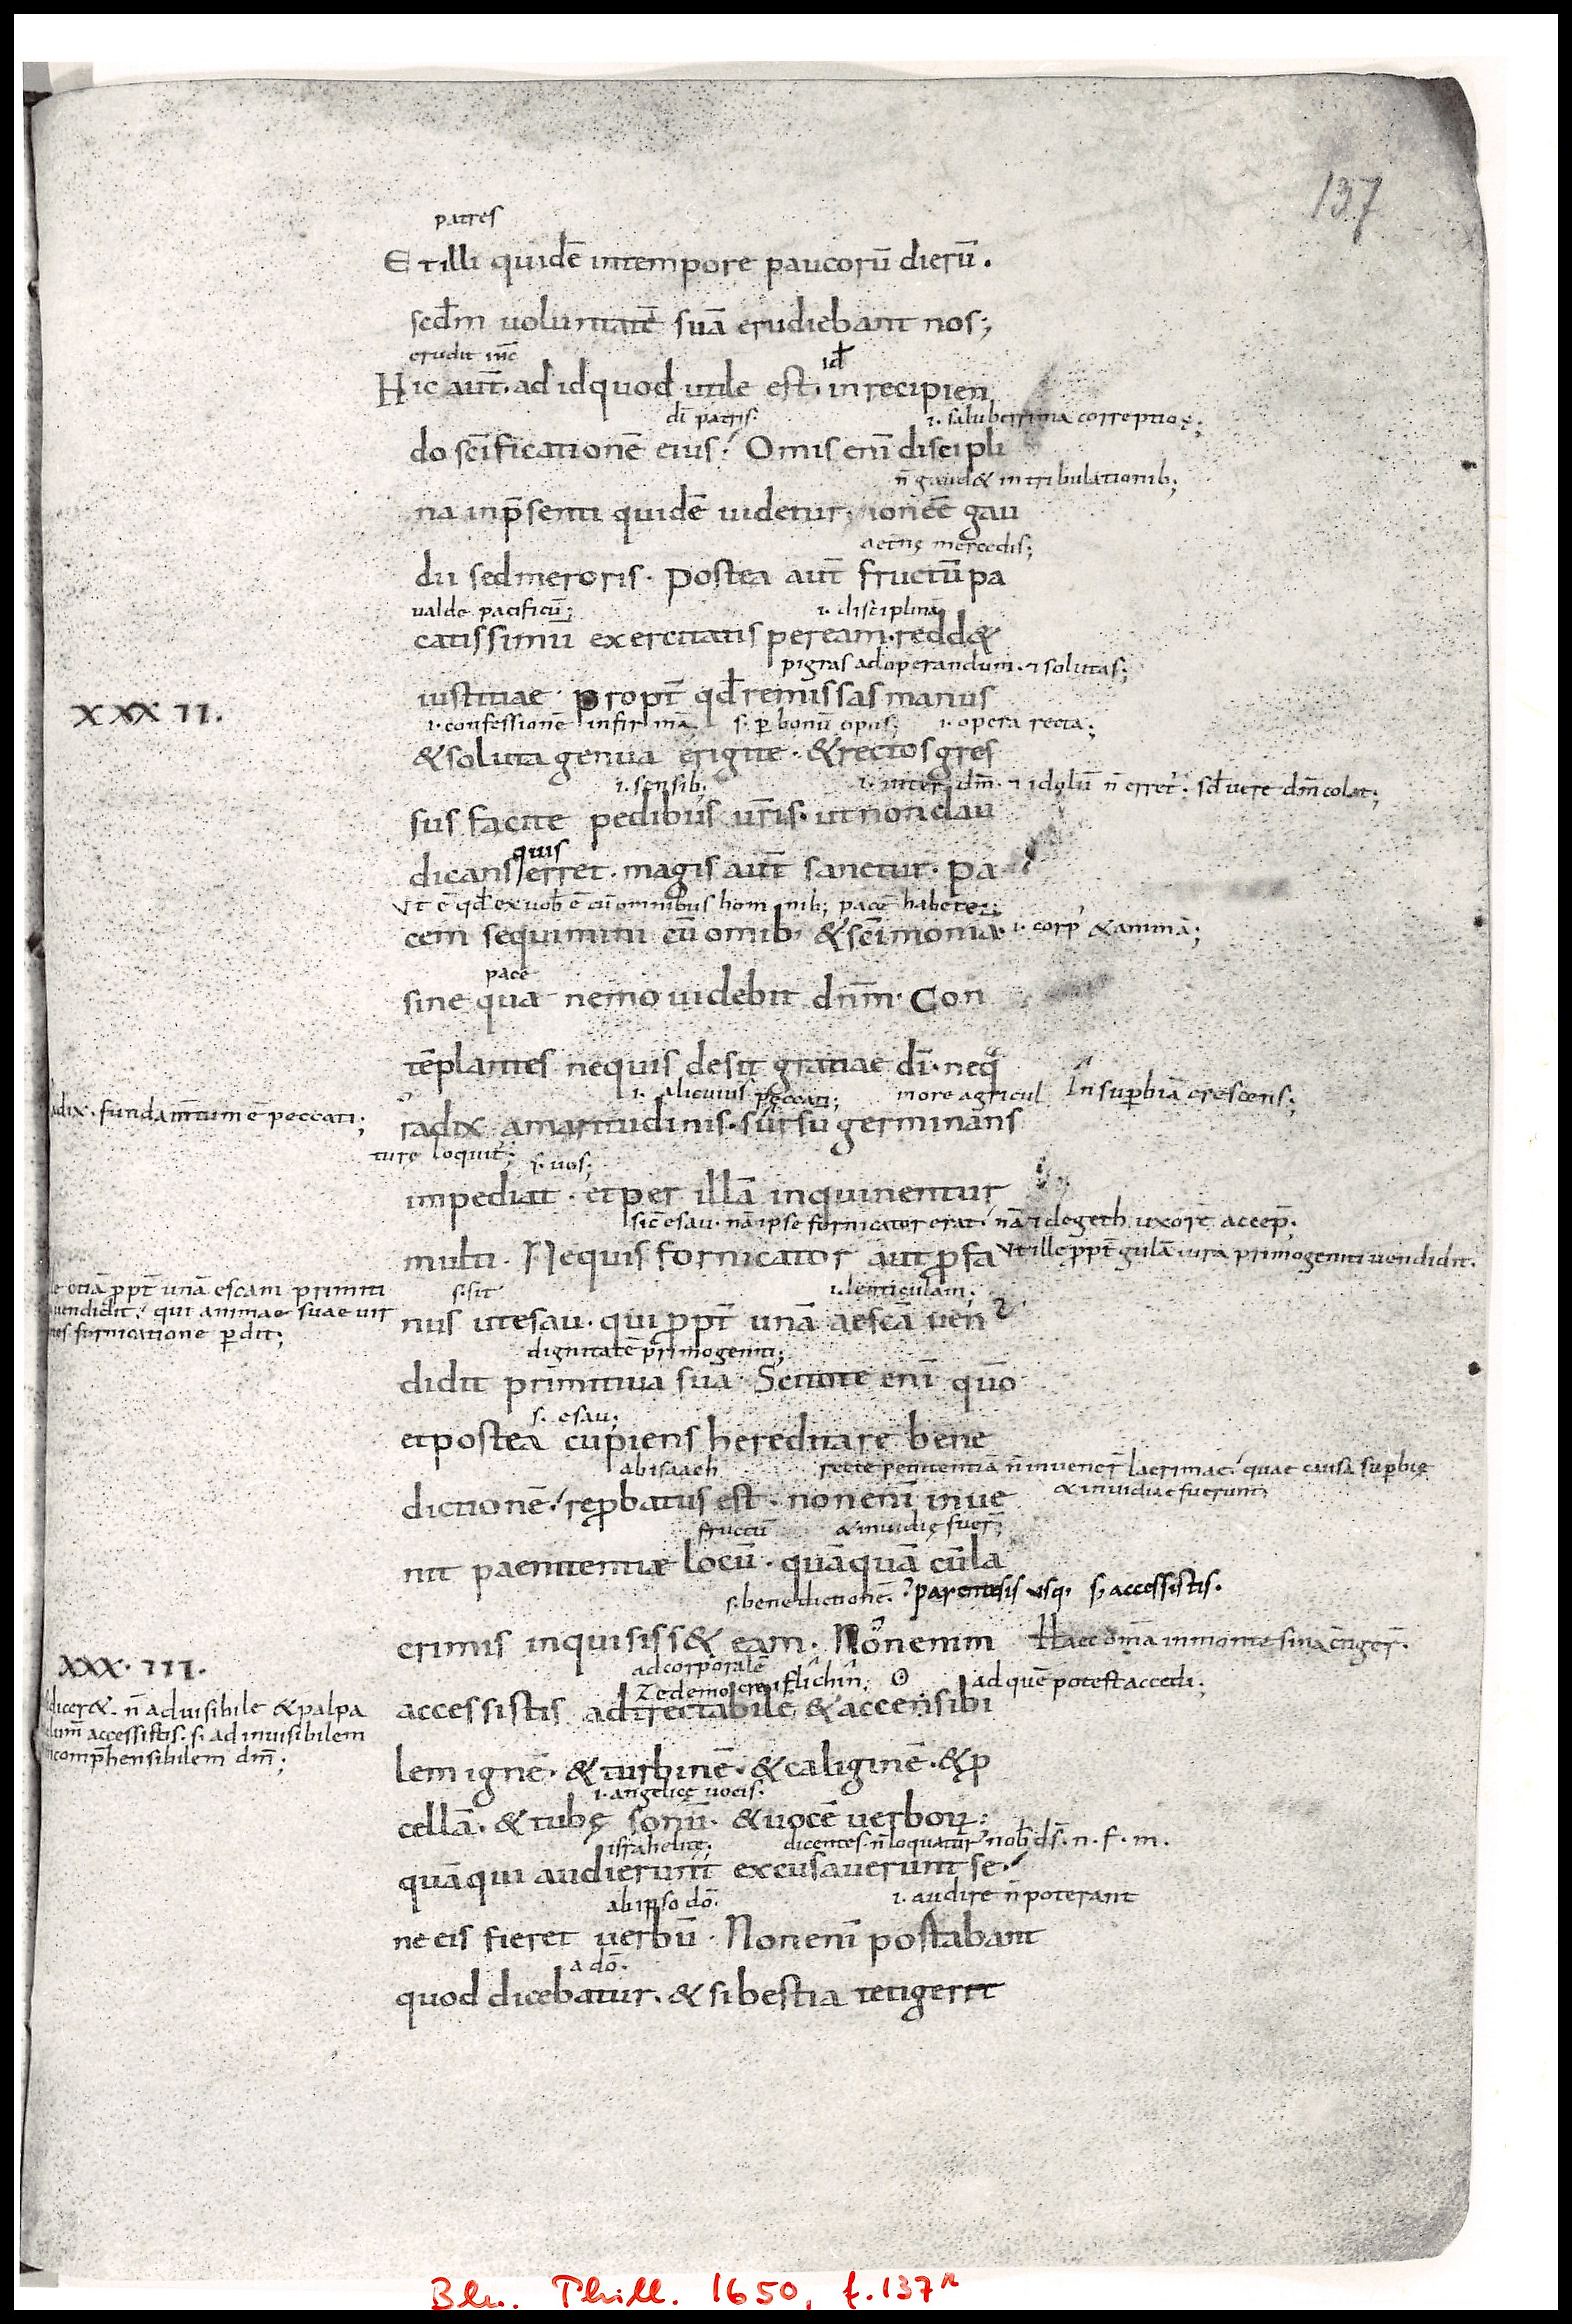 137
patres
Et illi quidē intempore paucorū dierū.
secd̄m uoluntatē suā erudiebant nos;
erudit
id
Hic aut̄. ad idquod utile est. inrecipien
dī patris:
ı. saluberrima correptio
do sc̄ificationē eius; Omis enī discipli
n̄ gaud& in tribulationib;
na inp̄senti quidē uidetur, gau
mercedis;
dii sedmeroris. Postea aut̄ fructū pa
ualde pacificū;
ı. disciplinā
catissimū exercitatis peream. redd&
pigras adoperandum. ⁊ solutas;
XXXII.
iustitiae. propt̄ qd̄ remissas manus
ı. confessionē infirmā s. p̱ bonū opus; ı. opera recta;
& soluta genua erigite. & rectos gres
ı. sensib;
ı. inter dm̄. ⁊ idolū n̄ erret. sd̄ uere dm̄ colat;
sus facite pedibus ur̄is. ut non clau
quis
dicans erret. magis aut̄ sanetur. pa
cū omnibus hominib; pacē
cem sequimini cū omib; & sc̄imoniā. ı. corp̄ & animā;
pace
sine qua nemo uidebit dnm̄. Con
tēplantes nequis desit gratiae dī. neq
ı. alicuius peccati; more agricul In sup̱biā crescens;
adix. fundam̄tum ē peccati;
radix amaritudinis. sursū germinans
turę loquit̄; s. uos;
impediat. et per illā inquinentur
sic esau. nā ipse fornicator erat. nā ⁊ degeth uxorē accep̄.
multi. Nequis fornicator aut p̱fa
Vt ille p̱pt̄ gulā iura primogeniti uendidit.
etiā p̱pt̄ unā escam primiti
uendidit. qui animae suae uir
fornicatione p̱dit;
s. sit
ı. lenticulam;
nus utesau. qui p̱pt̄ unā aescā uen
dignitatē primogeniti;
didit primitiua sua. Scitote enī quō
s. esau;
et postea cupiens hereditare bene
ab isaach
recte penitentiā n̄ inuener̄ lacrimae quae causa sup̱bię
& inuidiae fuerunt;
dictionē. rep̱batus est. non enī inue
fructū
& inuidię fuer̄;
nit paenitentiæ locū. quāquā cūla
s. benedictionē. parentesis usq; s; accessistis.
crimis inquisiss& eam. Nonenim
Haec omīa in monte sina
adcorporalē
XXX.III.
ad quē potest accedi;
dicer&. n̄ aduisibile & palpa
accessistis. s. ad inuisibilem
comp̄hensibilem dm̄;
accessistis adtrectabilē & accensibi
lem ignē. & turbinē. & caliginē. & p̱
ı. angelicę uocis:
cellā. & tubę sonū. & uocē uerboꝝ:
israhelitę; dicentes. n̄ loquatur nob̄ ds̄. n. f. m.
quā qui audierunt excusauerunt se.
ab ipso dō.
ı. audire n̄ poterant
ne eis fieret uerbū. Non enī postabant
a dō.
quod dicebatur. & si bestia tetigerit
Bln. Phill. 1650, f. 137r